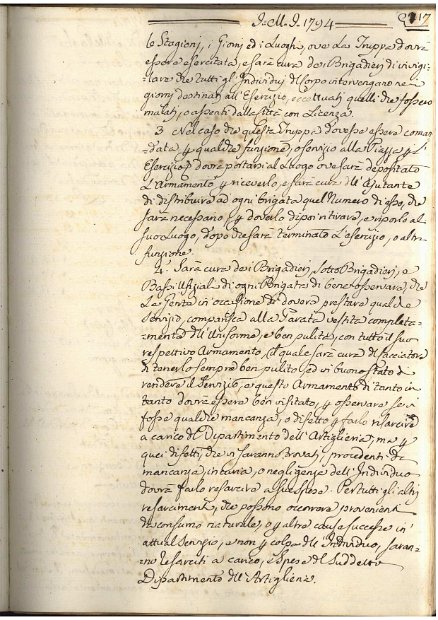 J.M.J. 1794 217
le Stagioni, i Giorni, ed i Luoghi, ove la Truppa dovrà
essere esercitata, e sarà cura dei Brigadieri di invigi=
lare che tutti gl'Individui del Corpo intervengano nei
giorni destinati all'Esercizio, eccettuati quelli che fossero
malati, o assenti dalla Città con Licenza.
3. Nel caso che questa Truppa dovesse essere coman
data p qualche funzione, o servizio alla Piazza, o p
Esercizio, dovrà portarsi al Luogo ove sarà depositato
L'Armamento p riceverlo, e sarà cura dell'Ajutante
di distribuire ad ogni brigata quel Numero di esso, che
sarà necessario, p doverlo dipoi ritirare, e riporlo al
suo Luogo, dopo che sarà terminato L'esercizio, o altra
funzione.
4. Sarà cura dei Brigadieri, Sotto Brigadieri, e
Bassi Ufiziali di ogni Brigata di bene osservare, che
La Gente in occasione di dover prestare qualche
servizio, comparisca alla Parata vestita completa=
mente dell'Uniforme, e ben pulita, con tutto il suo
respettivo Armamento, il quale sarà cura del
di tenerlo sempre ben pulito, ed in buono stato di
rendere il Servizio, e questo Armamento di tanto in
tanto dovrà essere ben visitato, p osservare se vi
fosse qualche mancanza, o difetto p farlo risarcire
a carico del Dipartimento dell'Artiglieria, ma p
quei difetti, che vi saranno trovati, procedenti da
mancanza, incuria, o negligenza dell'Individuo
dovrà farlo risarcire a sue spese. Per tutti gli altri
resarcimenti, che possono occorrere provenienti
da consumo naturale, o p altre cause successe in
attual Servizio, e non p colpa dell'Individuo, saran=
no resarciti a carico, e spese del Suddetto
Dipartimento dell'Artiglieria.